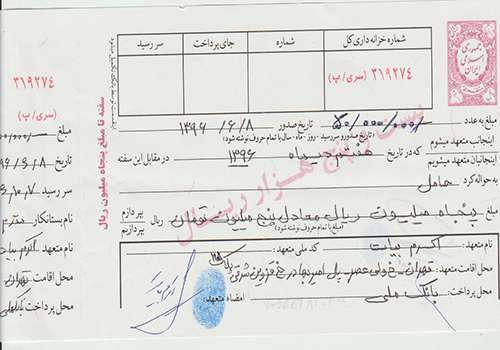 جمهوری اسلامی ایران
شماره خزانه داری کل
شماره
جای پرداخت
سر رسید
۳۱۹۲۷۴ (سری/ پ)
سفته تا مبلغ پنجاه میلیون ریال
بیست و پنج هزار ریال
مبلغ به عدد ۵۰/۰۰۰/۰۰۰ تاریخ صدور ۱۳۹۶/۶/۸
(تاریخ صدور و سر رسید - روز - ماه - سال با تمام حروف نوشته شود)
اینجانب متعهد میشوم
اینجانبان متعهد میشویم
که در تاریخ هفتم دیماه ۱۳۹۶ در مقابل این سفته
به حواله کرد حامل
مبلغ پنجاه میلیون ریال معادل پنج میلیون تومان بپردازم
بپردازیم
(مبلغ با تمام حروف نوشته شود)
نام متعهد: اکرم بیات کد ملی متعهد:
محل اقامت متعهد: تهران - خ ولی عصر - پل امیربهادر خ قزوین شرقی پلاک
محل پرداخت: بانک ملی امضاء متعهد:
۳۱۹۲۷۴
(سری/ پ)
مبلغ
تاریخ
سر رسید
نام بستانکار
نام متعهد اکرم بیات
محل اقامت تهران
محل پرداخت